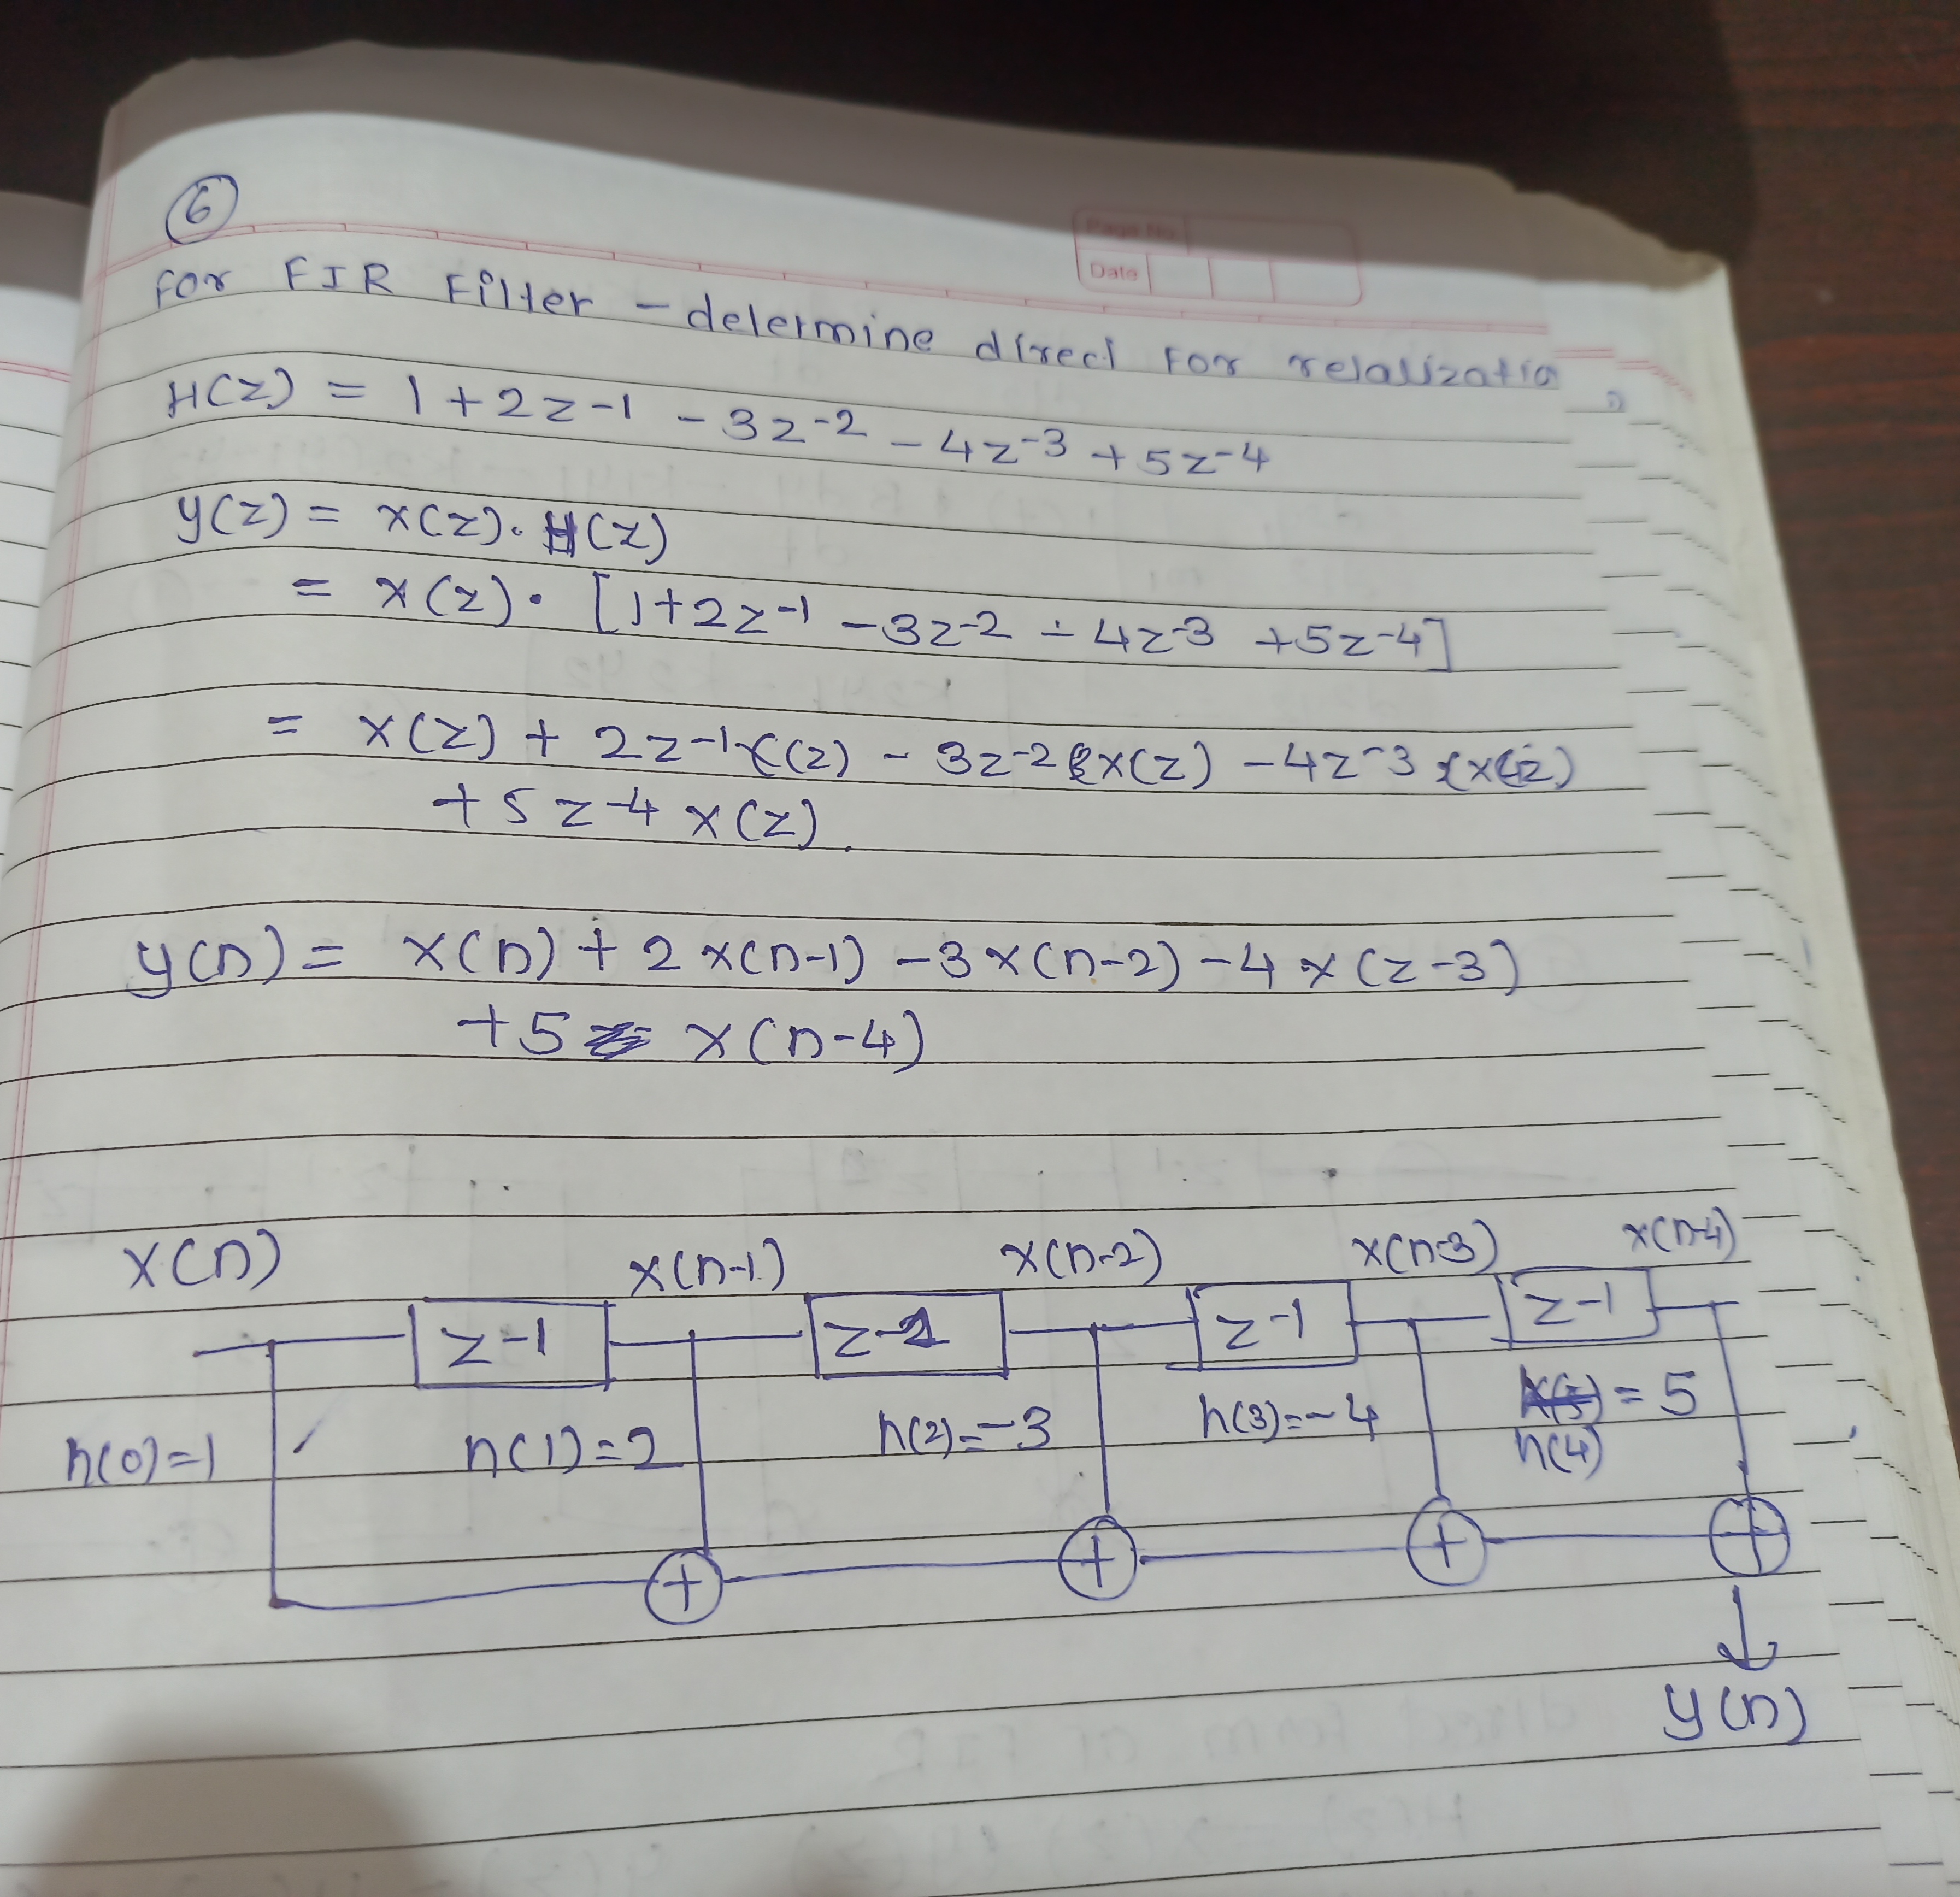 6
Page No
Date
For FIR Filter - determine direct For relalizatio
n
H(z) = 1 + 2z-1 - 3z-2 - 4z-3 + 5z-4
y(z) = x(z). H(z)
= x(z). [1+2z-1 - 3z-2 - 4z-3 + 5z-4]
= x(z) + 2z-1 x(z) - 3z-2 x(z) - 4z-3 x(z)
+ 5z-4 x(z).
y(n) = x(n) + 2 x(n-1) - 3 x(n-2) - 4 x(z-3)
+5 x(n-4)
x(n) x(n-1) x(n-2) x(n-3) x(n-4)
z-1 z-1 z-1 z-1
h(0)=1 h(1)=2 h(2)=-3 h(3)=-4 = 5
h(4)
+ + + +
y(n)